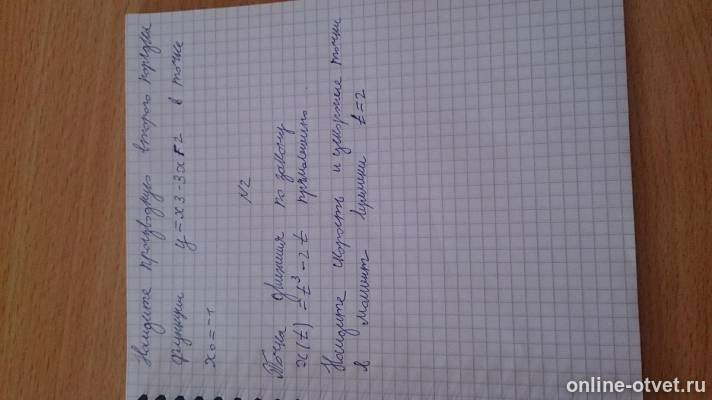 Найдите производную второго порядка
функции y=x3-3x+2 в точке
x0=-1
N2
Точка движения по закону
x(t)=t³-2t прямолинейно.
Найдите скорость и ускорение точки
в момент времени t=2
online-otvet.ru